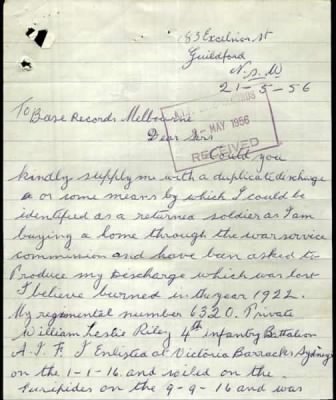 83 Excelsior St
Guildford
N.S.W
21-5-56
To Base Records Melbourne
MAY 1956
RECEIVED
Dear Sirs
Could you
kindly supply me with a duplicate discharge
or some means by which I could be
identified as a returned soldier as I am
buying a home through the war service
commission and have been asked to
Produce my Discharge which was lost
I believe burned in the year 1922.
My regimental number 6320. Private
William Leslie Riley 4th infantry Battalion
A.I.F. I Enlisted at Victoria Barracks Sydney
on the 1-1-16 and sailed on the
Euripides on the 9-9-16 and was